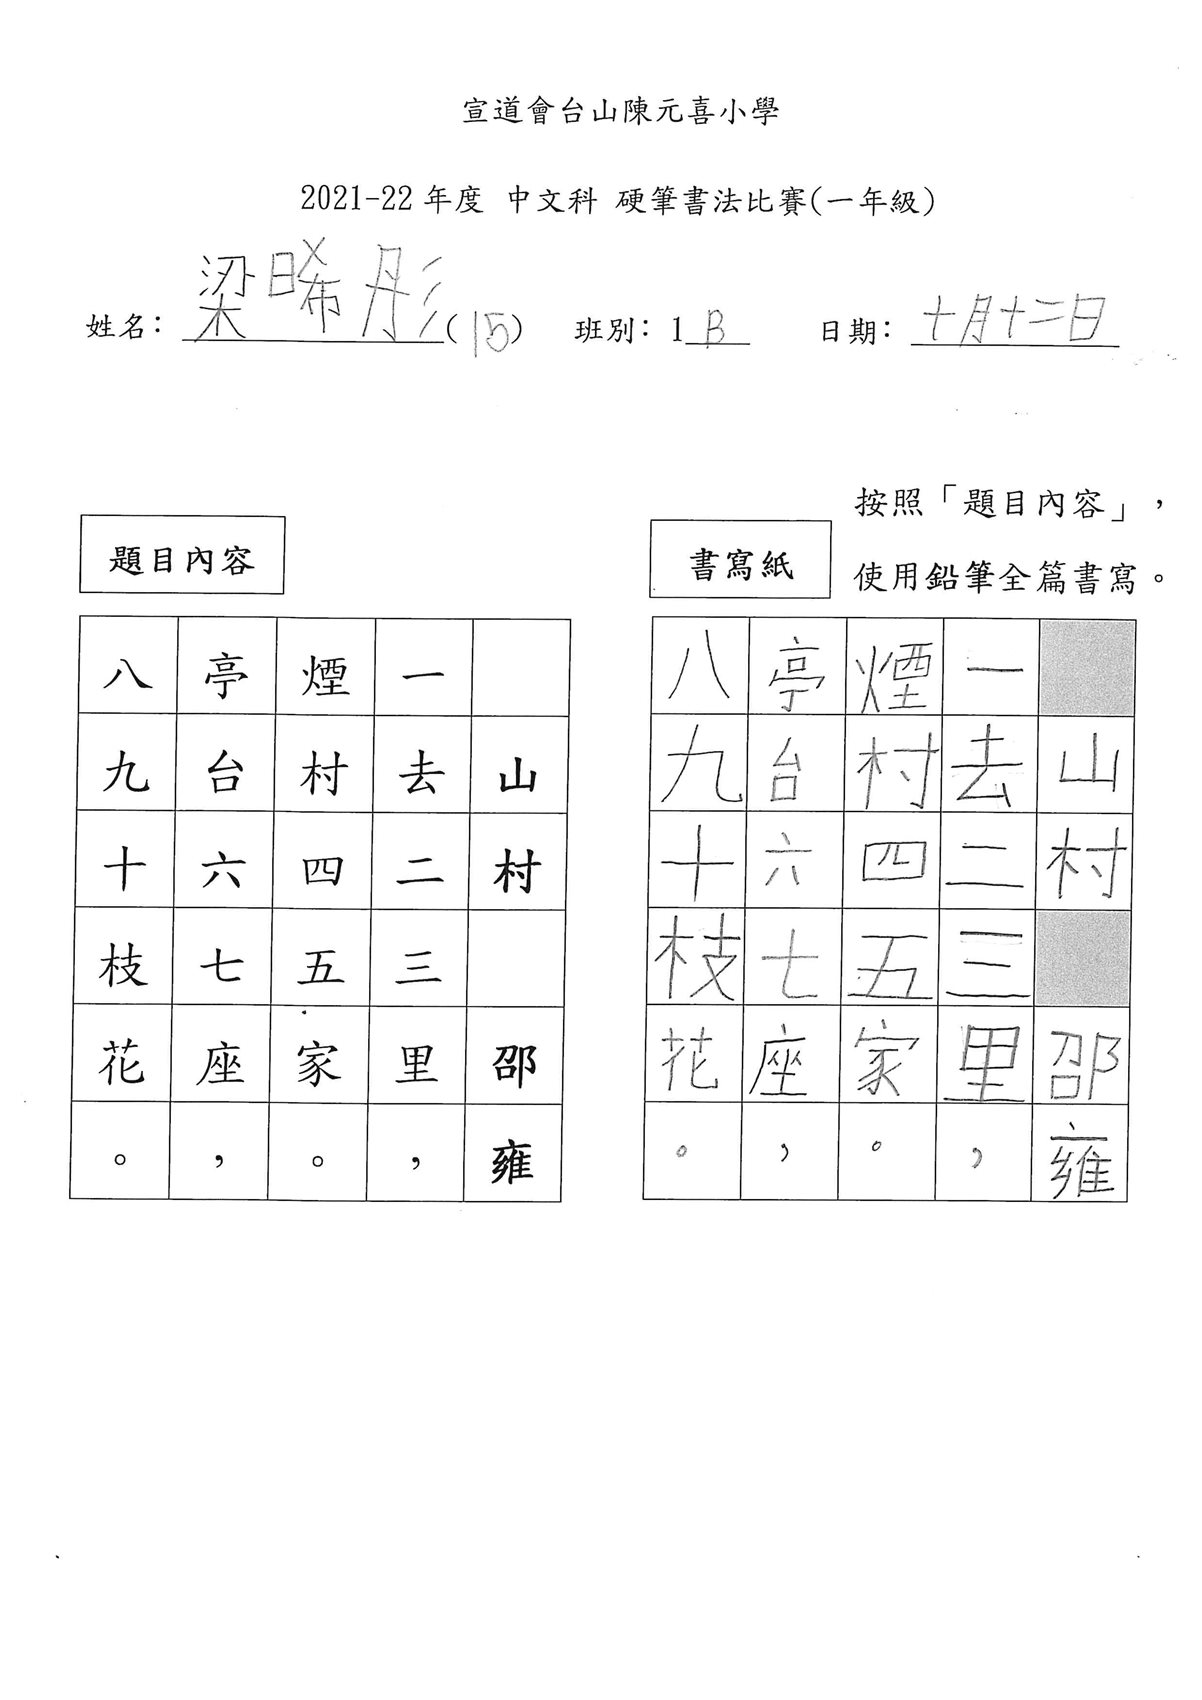 宣道會台山陳元喜小學
2021-22 年度 中文科 硬筆書法比賽(一年級)
姓名：梁晞彤(15) 班別：1B 日期：十月十二日
按照「題目內容」，
使用鉛筆全篇書寫。
題目內容
山村 邵雍
一去二三里，
煙村四五家。
亭台六七座，
八九十枝花。
書寫紙
山村 邵雍
一去二三里，
煙村四五家。
亭台六七座，
八九十枝花。